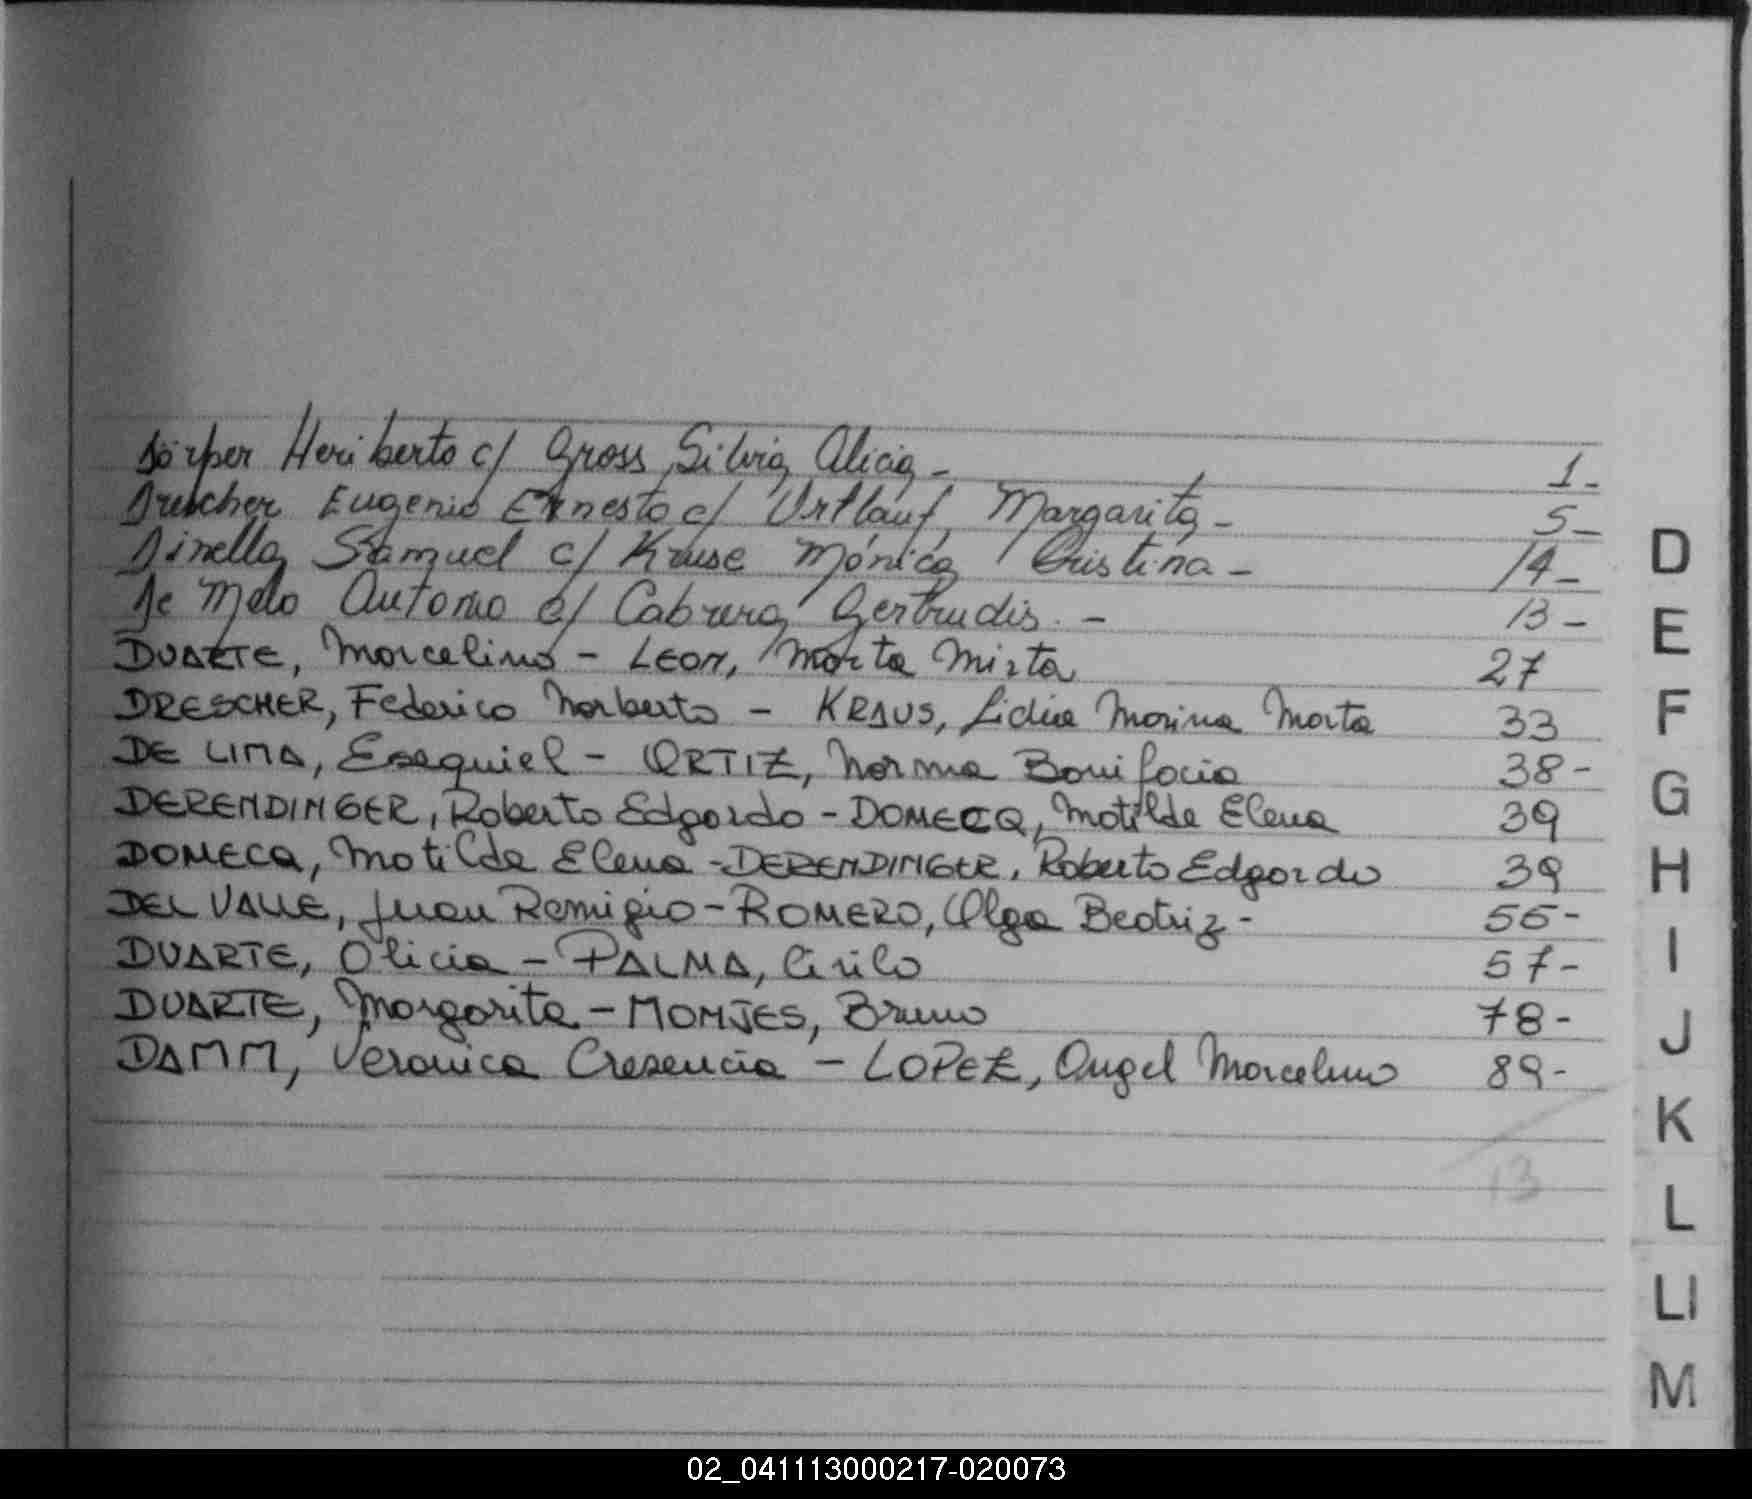 Dörper Heriberto c/ Gross, Silvia Alicia - 1-
Drescher Eugenio Ernesto c/ Urllauf, Margarita - 5-
Dinella, Samuel c/ Kruse Mónica Cristina - 14-
De Melo Antonio c/ Cabrera, Gertrudis. - 13-
DUARTE, Marcelino - LEON, Marta Mirta 27
DRESCHER, Federico Norberto - KRAUS, Lidia Marina Marta 33
DE LIMA, Esequiel - ORTIZ, Norma Bonifacia 38-
DERENDINGER, Roberto Edgardo - DOMECQ, Matilde Elena 39
DOMECQ, Matilde Elena - DERENDINGER, Roberto Edgardo 39
DEL VALLE, Juan Remigio - ROMERO, Olga Beatriz - 56-
DUARTE, Alicia - PALMA, Cirilo 57-
DUARTE, Margarita - MONJES, Bruno 78-
DAMM, Veronica Cresencia - LOPEZ, Angel Marcelino 89-
13
D
E
F
G
H
I
J
K
L
Ll
M
02_041113000217-020073